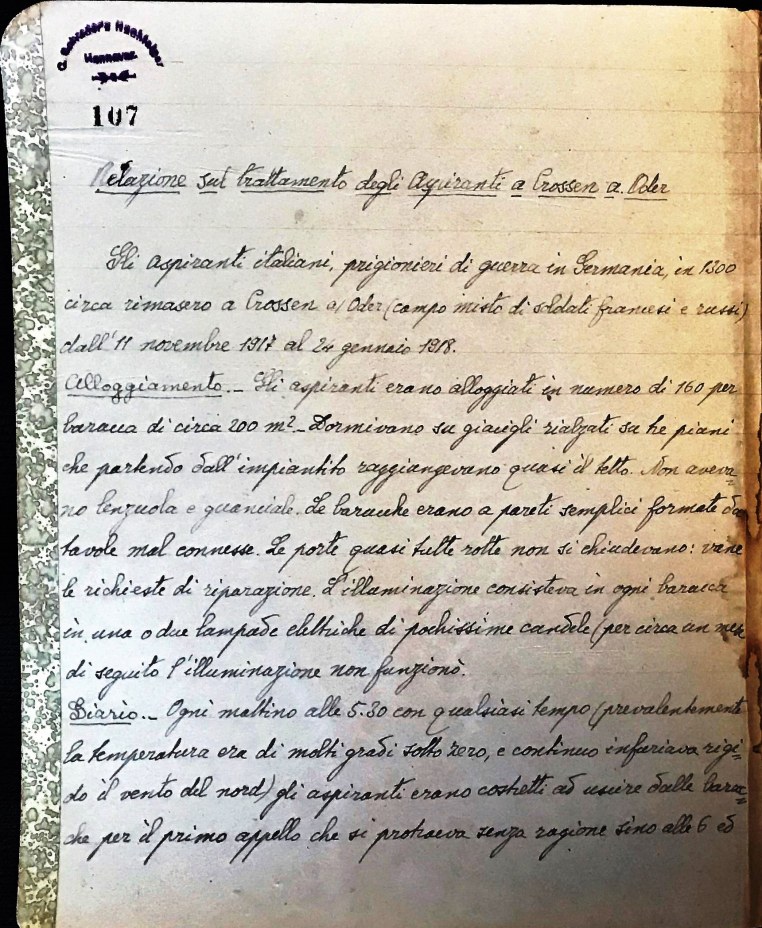 C. Schrader's Nachfolger
Hannover
107
Relazione sul trattamento degli Aspiranti a Crossen a. Oder
Gli aspiranti italiani, prigionieri di guerra in Germania, in 1300
circa rimasero a Crossen a/Oder (campo misto di soldati francesi e russi)
dall'11 novembre 1917 al 24 gennaio 1918.
Alloggiamento._ Gli aspiranti erano alloggiati in numero di 160 per
baracca di circa 200 m²_ Dormivano su giacigli rialzati su tre piani
che partendo dall'impiantito raggiungevano quasi il tetto. Non aveva=
no lenzuola e guanciale. Le baracche erano a pareti semplici formate da
tavole mal connesse. Le porte quasi tutte rotte non si chiudevano: vane
le richieste di riparazione. L'illuminazione consisteva in ogni baracca
in una o due lampade elettriche di pochissime candele (per circa un mese
di seguito l'illuminazione non funzionò.
Diario._ Ogni mattino alle 5.30 con qualsiasi tempo (prevalentemente
la temperatura era di molti gradi sotto zero, e continuo infuriava rigi=
do il vento del nord) gli aspiranti erano costretti ad uscire dalle barac=
che per il primo appello che si protraeva senza ragione sino alle 6 ed